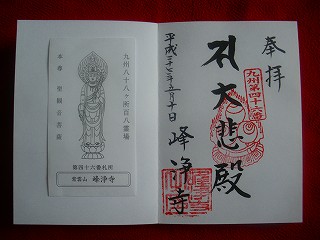 奉拝
九州第四十六番
大悲殿
峰浄寺
平成二十二年五月十日
九州八十八ヶ所百八霊場
本尊 聖観音菩薩
第四十六番札所
峰浄寺